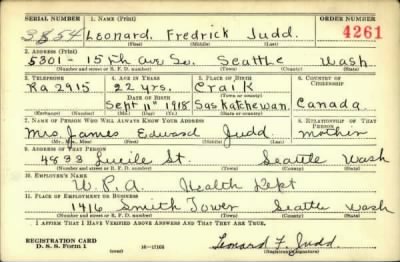 SERIAL NUMBER 1. NAME (Print) ORDER NUMBER
3854 Leonard Fredrick Judd 4261
(First) (Middle) (Last)
2. ADDRESS (Print)
5301 - 15th Ave So. Seattle Wash.
(Number and street or R. F. D. number) (Town) (County) (State)
3. TELEPHONE 4. AGE IN YEARS 5. PLACE OF BIRTH 6. COUNTRY OF CITIZENSHIP
Ra 2915 22 yrs. Craik
DATE OF BIRTH (Town or county)
Sept 11 1918 Saskatchewan. Canada.
(Mo.) (Day) (Yr.) (State or country)
7. NAME OF PERSON WHO WILL ALWAYS KNOW YOUR ADDRESS 8. RELATIONSHIP OF THAT PERSON
Mrs. James Edward Judd mother
(Mr., Mrs., Miss) (First) (Middle) (Last)
9. ADDRESS OF THAT PERSON
4833 Lucile St. Seattle Wash
(Number and street or R. F. D. number) (Town) (County) (State)
10. EMPLOYER'S NAME
W.P.A. Health Dept
11. PLACE OF EMPLOYMENT OR BUSINESS
1416 Smith Tower Seattle Wash
(Number and street or R. F. D. number) (Town) (County) (State)
I AFFIRM THAT I HAVE VERIFIED ABOVE ANSWERS AND THAT THEY ARE TRUE.
REGISTRATION CARD
D. S. S. Form 1 16-17105 Leonard F. Judd
(Registrant's signature)